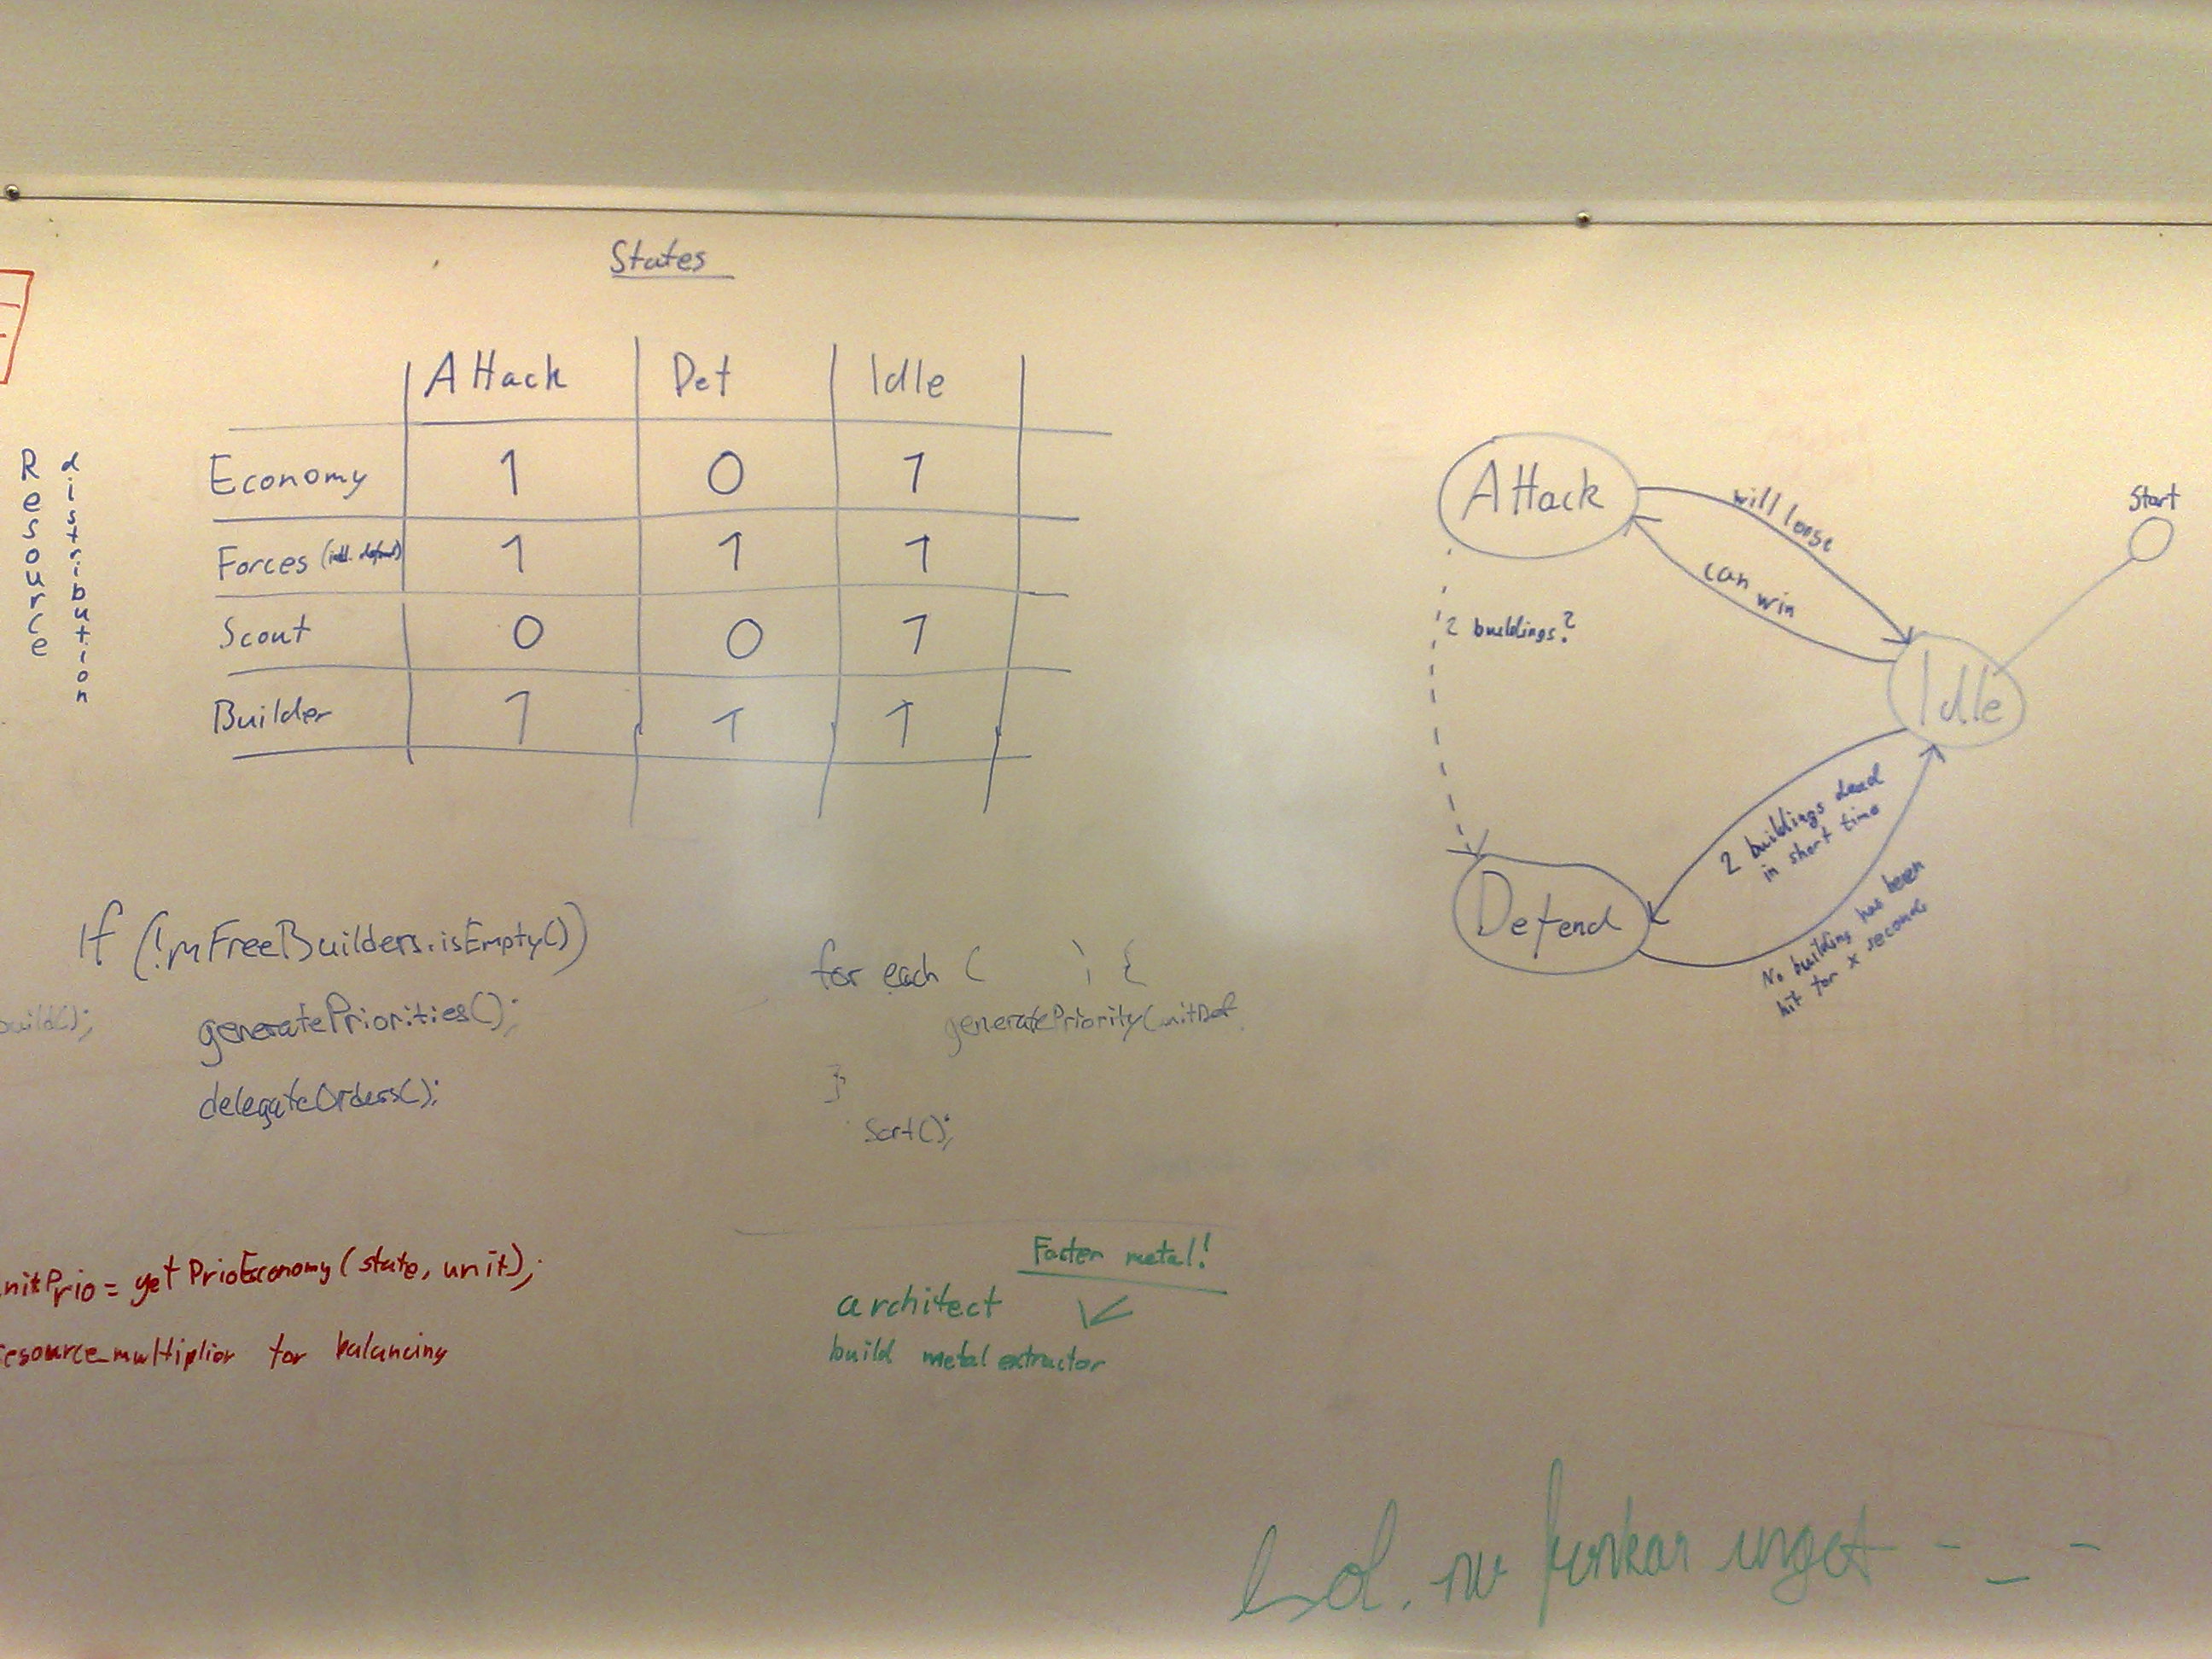 States
Attack Def Idle
Resource distribution
Economy 1 0 1
Forces (inkl. defend) 1 1 1
Scout 0 0 1
Builder 1 1 1
Attack
will loose
can win
Start
2 buildings?
Idle
2 buildings dead
in short time
Defend
No building has been
hit for x seconds
If (!mFreeBuilders.isEmpty())
build();
generatePriorities();
delegateOrders();
for each ( ) {
generatePriority(unitDef
}
sort();
nitPrio = getPrioEconomy(state, unit);
esource_multiplior for balancing
Faster metal!
architect
build metal extractor
lol. nu funkar inget - _ -